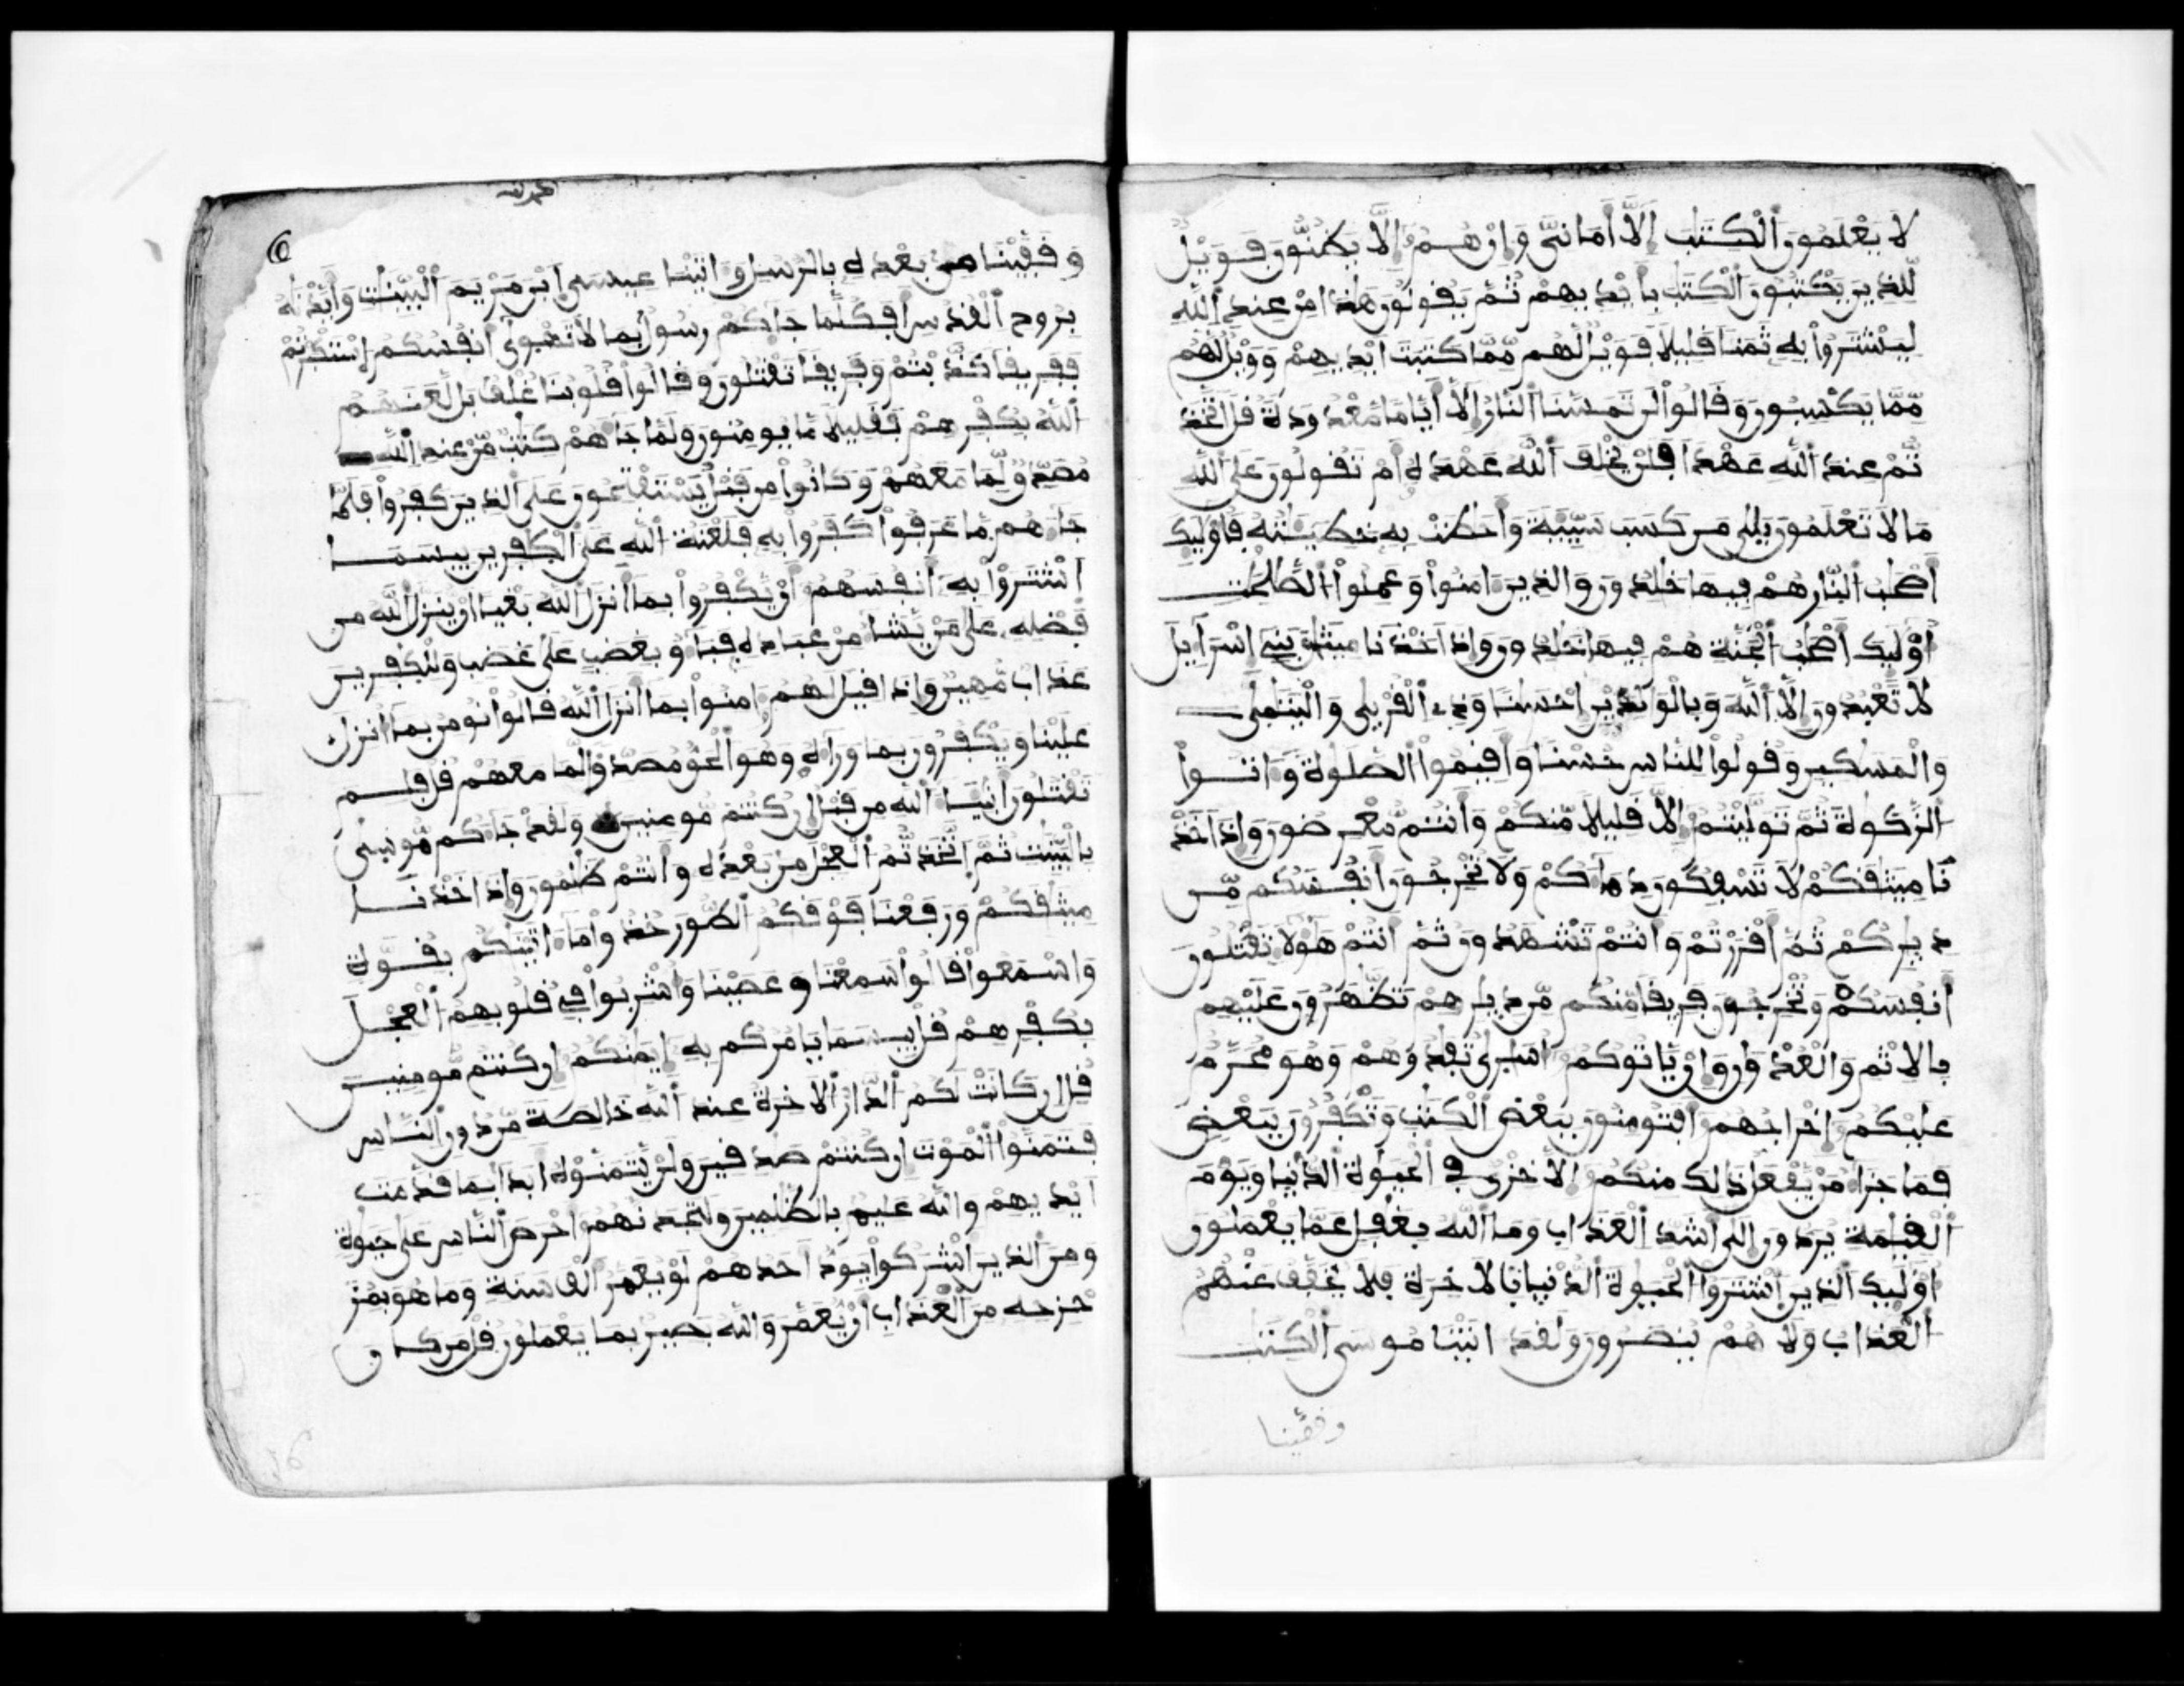 لا يعلمون الكتب إلا أماني وإن هم إلا يظنون فويل
للذين يكتبون الكتب بأيديهم ثم يقولون هذا من عند الله
ليشتروا به ثمنا قليلا فويل لهم مما كتبت أيديهم وويل لهم
مما يكسبون وقالوا لن تمسنا النار إلا أياما معدودة قل اتخذ
تم عند الله عهدا فلن يخلف الله عهده أم تقولون على الله
ما لا تعلمون بلى من كسب سيئة وأحطت به خطيئته فأوليك
أصحب النار هم فيها خلدون والذين امنوا وعملوا الصلحت
أوليك أصحب الجنة هم فيها خلدون وإذ اخذنا ميثق بني اسراءيل
لا تعبدون إلا الله وبالولدين إحسنا وذي القربى واليتمى
والمسكين وقولوا للناس حسنا وأقيموا الصلوة وءاتوا
الزكوة ثم توليتم إلا قليلا منكم وأنتم معرضون وإذ اخذ
نا ميثقكم لا تسفكون دماءكم ولا تخرجون انفسكم من
ديركم ثم أقررتم وأنتم تشهدون ثم انتم هؤلا تقتلون
أنفسكم وتخرجون فريقا منكم من ديرهم تظهرون عليهم
بالاثم والعدون وإن ياتوكم أسرى تفدوهم وهو محرم
عليكم إخراجهم افتومنون ببعض الكتب وتكفرون ببعض
فما جزاء من يفعل ذلك منكم إلا خزي في الحيوة الدنيا ويوم
القيمة يردون إلى أشد العذاب وما الله بغفل عما يعملون
أوليك الذين اشتروا الحيوة الدنيا بالاخرة فلا يخفف عنهم
العذاب ولا هم ينصرون ولقد اتينا موسى الكتب
وقفينا
وقفينا من بعده بالرسل واتينا عيسى ابن مريم البينت وأيدنه
بروح القدس افكلما جاكم رسول بما لا تهوى أنفسكم استكبرتم
ففريقا كذبتم وفريقا تقتلون وقالوا قلوبنا غلف بل لعنهم
الله بكفرهم فقليلا ما يومنون ولما جاهم كتب من عند الله
مصدق لما معهم وكانوا من قبل يستفتحون على الذين كفروا فلما
جاهم ما عرفوا كفروا به فلعنة الله على الكفرين بيسما
اشتروا به أنفسهم أن يكفروا بما أنزل الله بغيا أن ينزل الله من
فضله على من يشا من عباده فباو بغضب على غضب وللكفرين
عذاب مهين وإذا قيل لهم امنوا بما أنزل الله قالوا نومن بما أنزل
علينا ويكفرون بما وراه وهو الحق مصدقا لما معهم قل فلم
تقتلون أنبيا الله من قبل إن كنتم مومنين ولقد جاكم موسى
بالبينت ثم اتخذتم العجل من بعده وانتم ظلمون وإذ اخذنا
ميثقكم ورفعنا فوقكم الطور خذوا ما اتينكم بقوة
واسمعوا قالوا سمعنا وعصينا واشربوا في قلوبهم العجل
بكفرهم قل بيسما يامركم به إيمنكم إن كنتم مومنين
قل إن كانت لكم الدار الاخرة عند الله خالصة من دون الناس
فتمنوا الموت إن كنتم صدقين ولن يتمنوه ابدا بما قدمت
أيديهم والله عليم بالظلمين ولتجدنهم احرص الناس على حيوة
ومن الذين أشركوا يود أحدهم لو يعمر الف سنة وما هو بمز
حزحه من العذاب أن يعمر والله بصير بما يعملون قل من كان